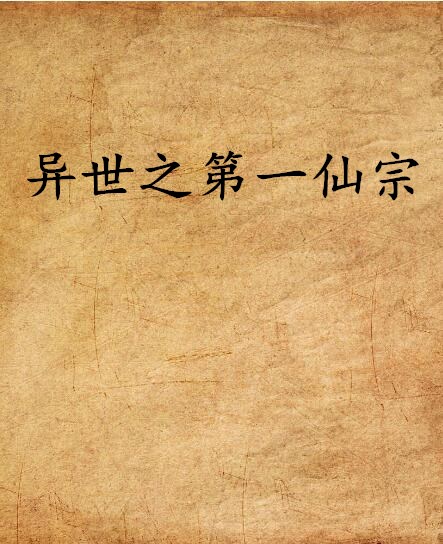 异世之第一仙宗